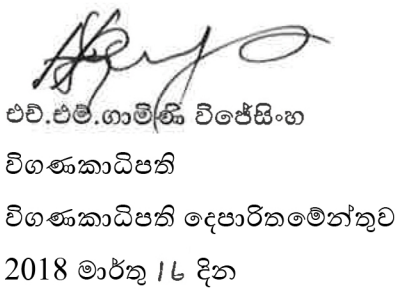 එච්.එම්.ගාමිණි විජේසිංහ
විගණකාධිපති
විගණකාධිපති දෙපාරිතමේන්තුව
2018 මාර්තු 16 දින